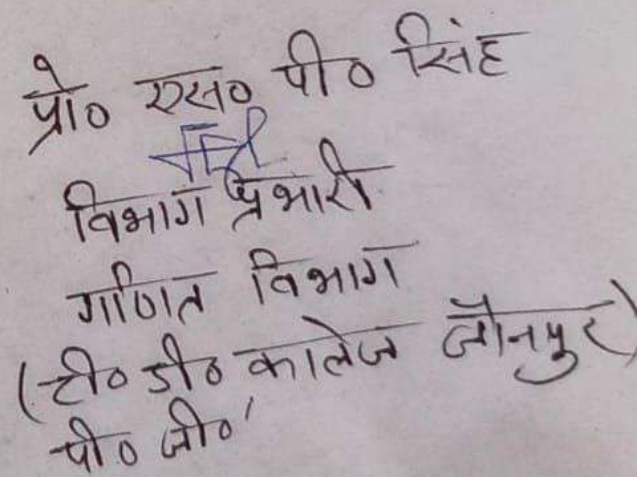 प्रो० एस० पी० सिंह
विभाग प्रभारी
गणित विभाग
(टी० डी० कालेज जौनपुर)
पी० जी०